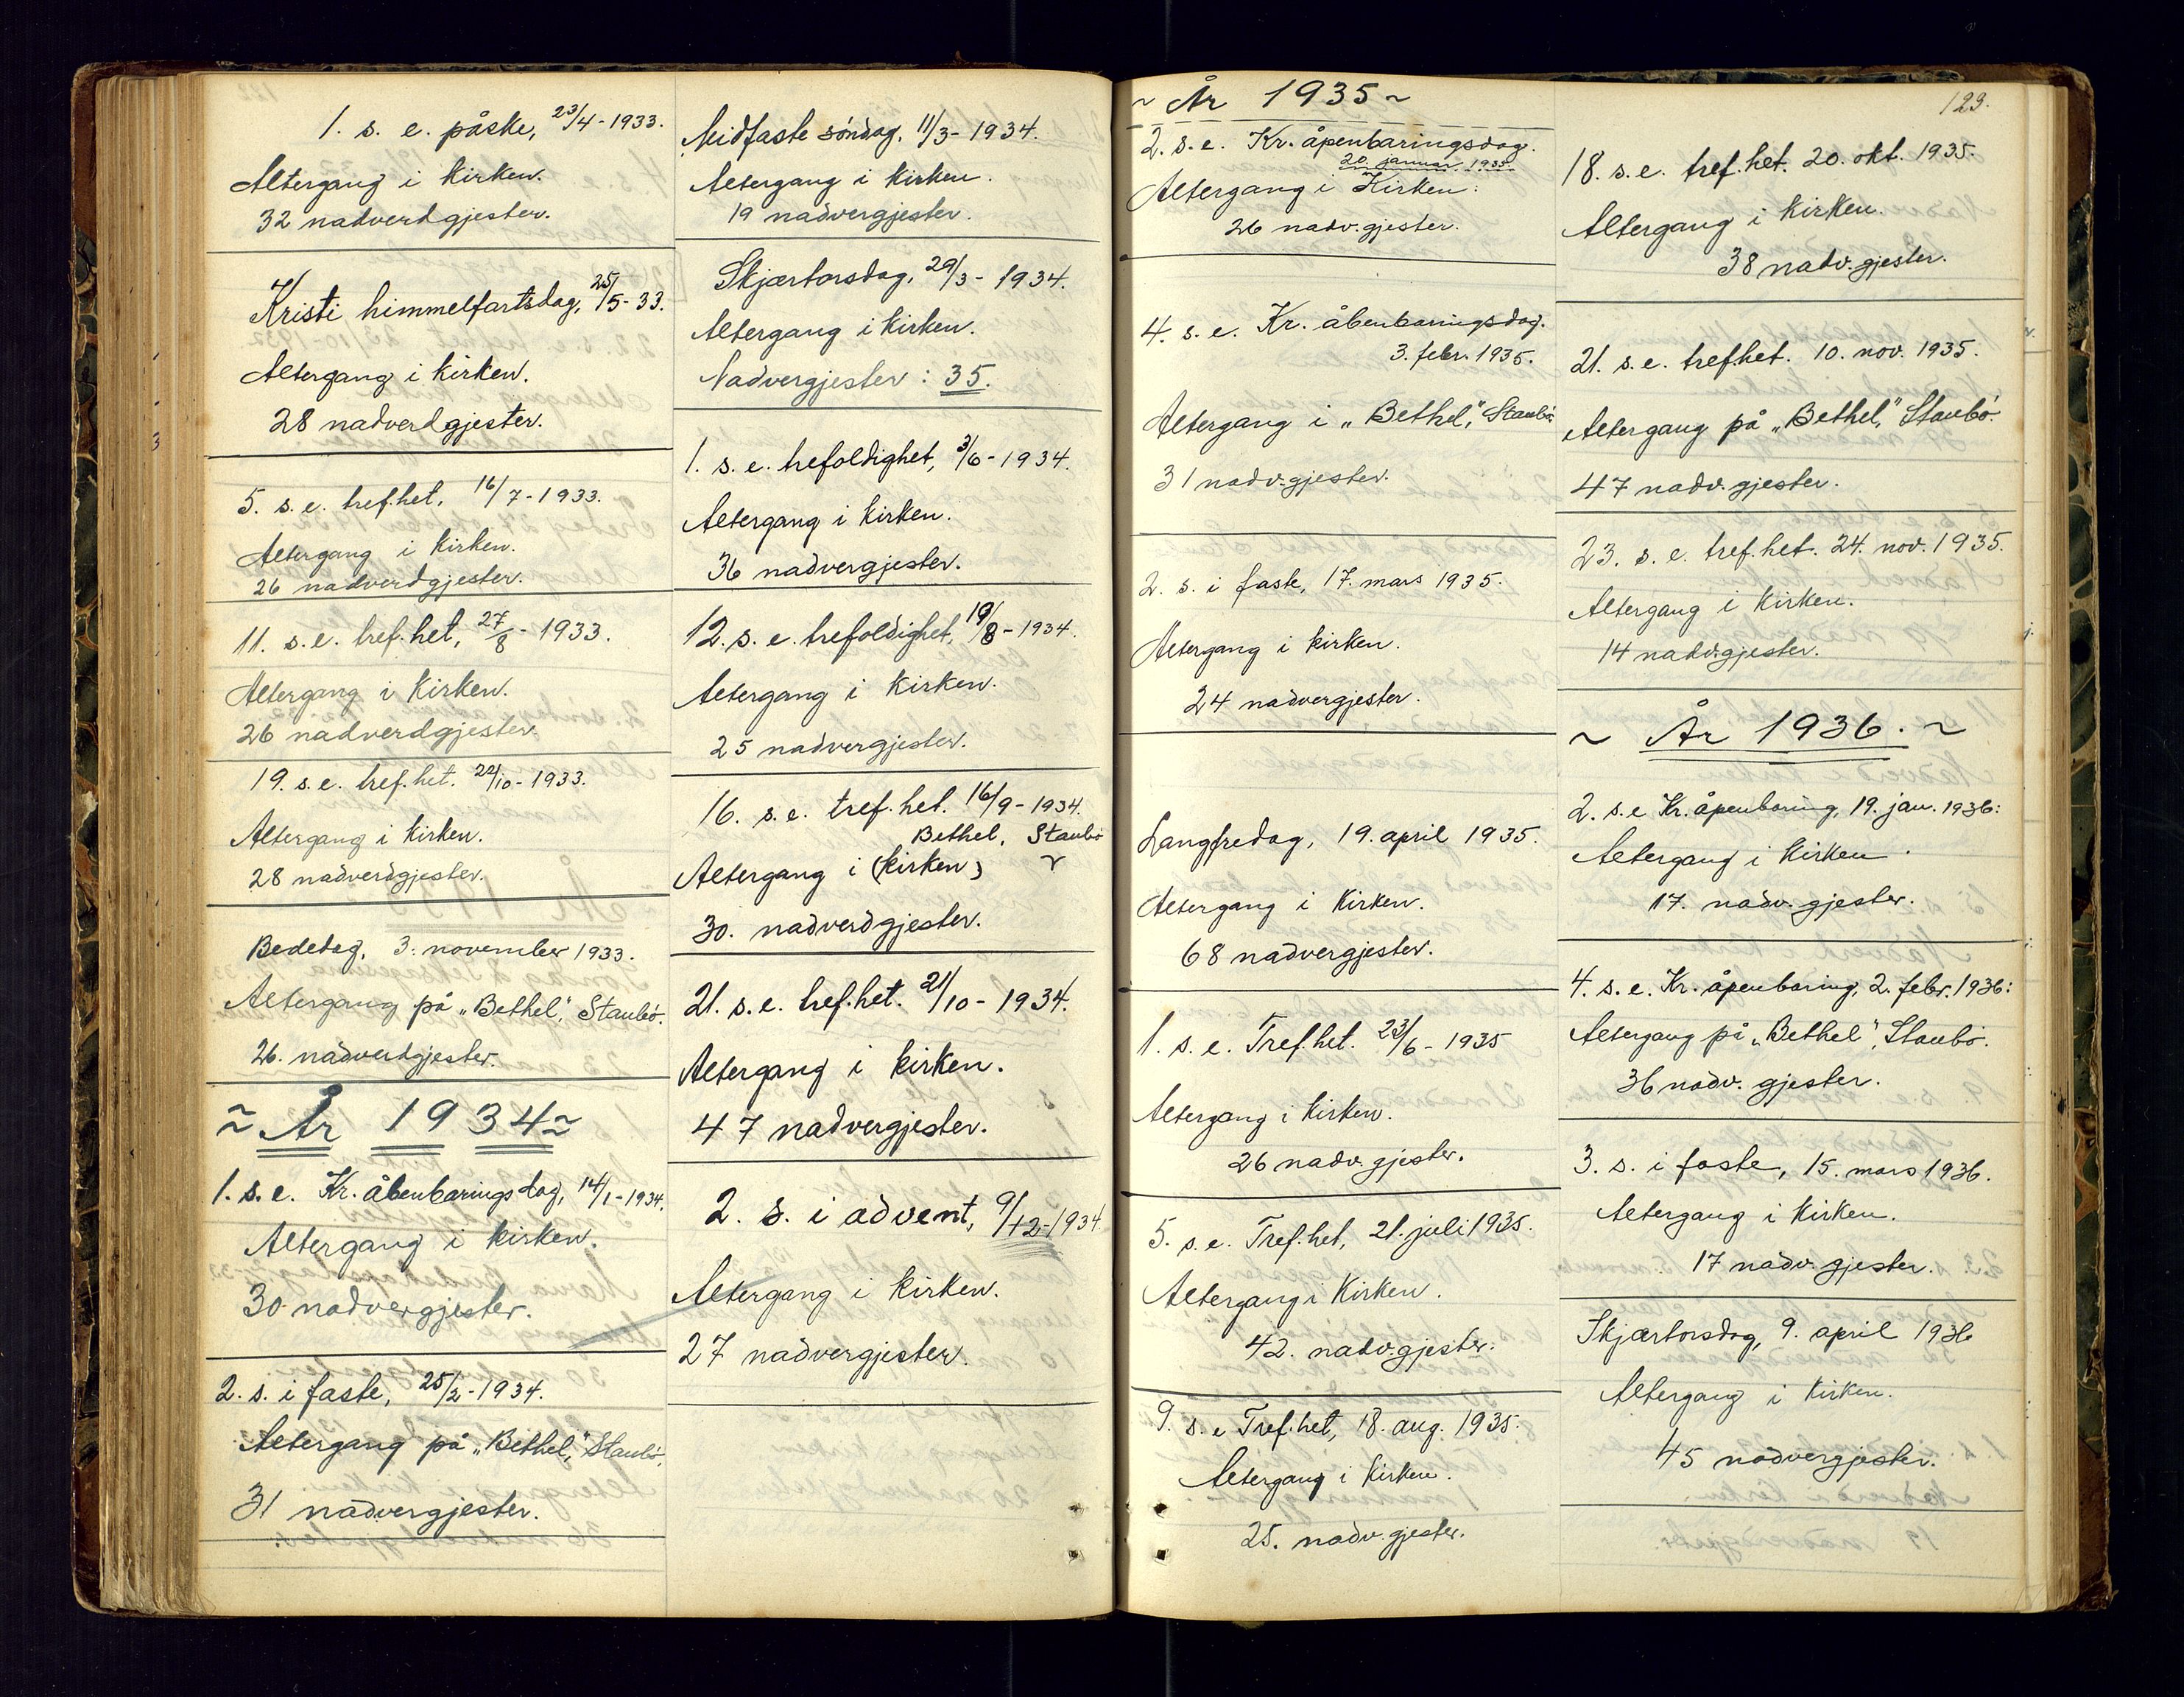 1. s. e. påske, 23/4-1933.
Altergang i kirken.
32 nadverdgjester.
Kristi himmelfartsdag, 25/5-33.
Altergang i kirken.
28 nadverdgjester.
5. s. e. tref.het, 16/7-1933.
Altergang i kirken.
26 nadverdgjester.
11. s. e. tref.het, 27/8-1933.
Altergang i kirken.
26 nadverdgjester.
19. s. e. tref.het. 22/10-1933.
Altergang i kirken.
28 nadverdgjester.
Bededag, 3. november 1933.
Altergang på „Bethel", Staubö.
26. nadverdgjester.
~ År 1934 ~
1. s. e. Kr. åbenbaringsdag, 14/1-1934.
Altergang i kirken.
30 nadvergjester.
2. s. i faste, 25/2-1934.
Altergang på „Bethel", Staubö.
31 nadvergjester.
Midfaste söndag, 11/3-1934.
Altergang i kirken.
19 nadvergjester.
Skjærtorsdag, 29/3-1934.
Altergang i kirken.
Nadvergjester: 35.
1. s. e. trefoldighet, 3/6-1934.
Altergang i kirken.
36 nadvergjester.
12. s. e. trefoldighet, 19/8-1934.
Altergang i kirken.
25 nadvergjester.
16. s. e. tref.het. 16/9-1934.
Bethel, Staubö
Altergang i (kirken)
30. nadverdgjester.
21. s. e. tref.het. 21/10-1934.
Altergang i kirken.
47 nadvergjester.
2. s. i advent, 9/12-1934.
Altergang i kirken.
27 nadvergjester.
~ År 1935 ~
2. s. e. Kr. åpenbaringsdag.
20. januar 1935.
Altergang i Kirken:
26 nadv.gjester.
4. s. e. Kr. åbenbaringsdag.
3. febr. 1935.
Altergang i „Bethel", Staubö.
31 nadv.gjester.
2. s. i faste, 17. mars 1935.
Altergang i kirken.
24 nadvergjester.
Langfredag, 19. april 1935.
Altergang i Kirken.
68 nadvergjester.
1. s. e. Tref.het. 23/6-1935
Altergang i Kirken.
26 nadv. gjester.
5. s. e. Tref.het, 21. juli 1935.
Altergang i Kirken.
42. nadv.gjester.
9. s. e Tref.het, 18. aug. 1935.
Altergang i kirken.
25. nadv. gjester.
123.
18. s. e. tref.het. 20. okt. 1935.
Altergang i kirken.
38 nadv. gjester.
21. s. e. tref.het. 10. nov. 1935.
Altergang på „Bethel", Staubö.
47 nadv. gjester.
23. s. e. tref.het. 24. nov. 1935.
Altergang i Kirken.
14 nadv.gjester.
~ År 1936. ~
2. s. e Kr. åpenbaring, 19. jan. 1936:
Altergang i kirken.
17. nadv. gjester.
4. s. e. Kr. åpenbaring, 2. febr. 1936:
Altergang på „Bethel", Staubö.
36 nadv. gjester.
3. s. i faste, 15. mars 1936.
Altergang i Kirken.
17 nadv. gjester.
Skjærtorsdag, 9. april 1936
Altergang i Kirken.
45 nadvergjester.